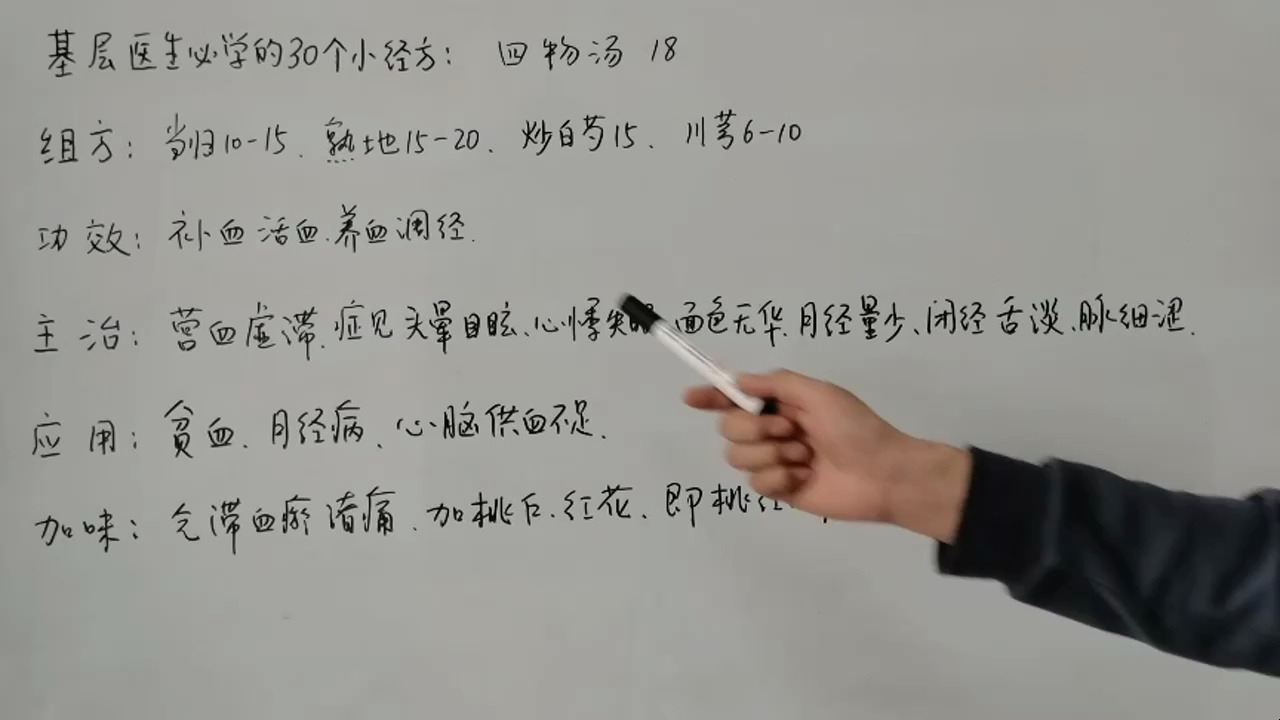 基层医生必学的30个小经方: 四物汤 18
组方: 当归10-15、熟地15-20、炒白芍15、川芎6-10
功效: 补血活血、养血调经.
主治: 营血虚滞、症见头晕目眩、心悸失眠、面色无华、月经量少、闭经舌淡、脉细涩.
应用: 贫血、月经病、心脑供血不足.
加味: 气滞血瘀 痛、加桃仁、红花、即桃红